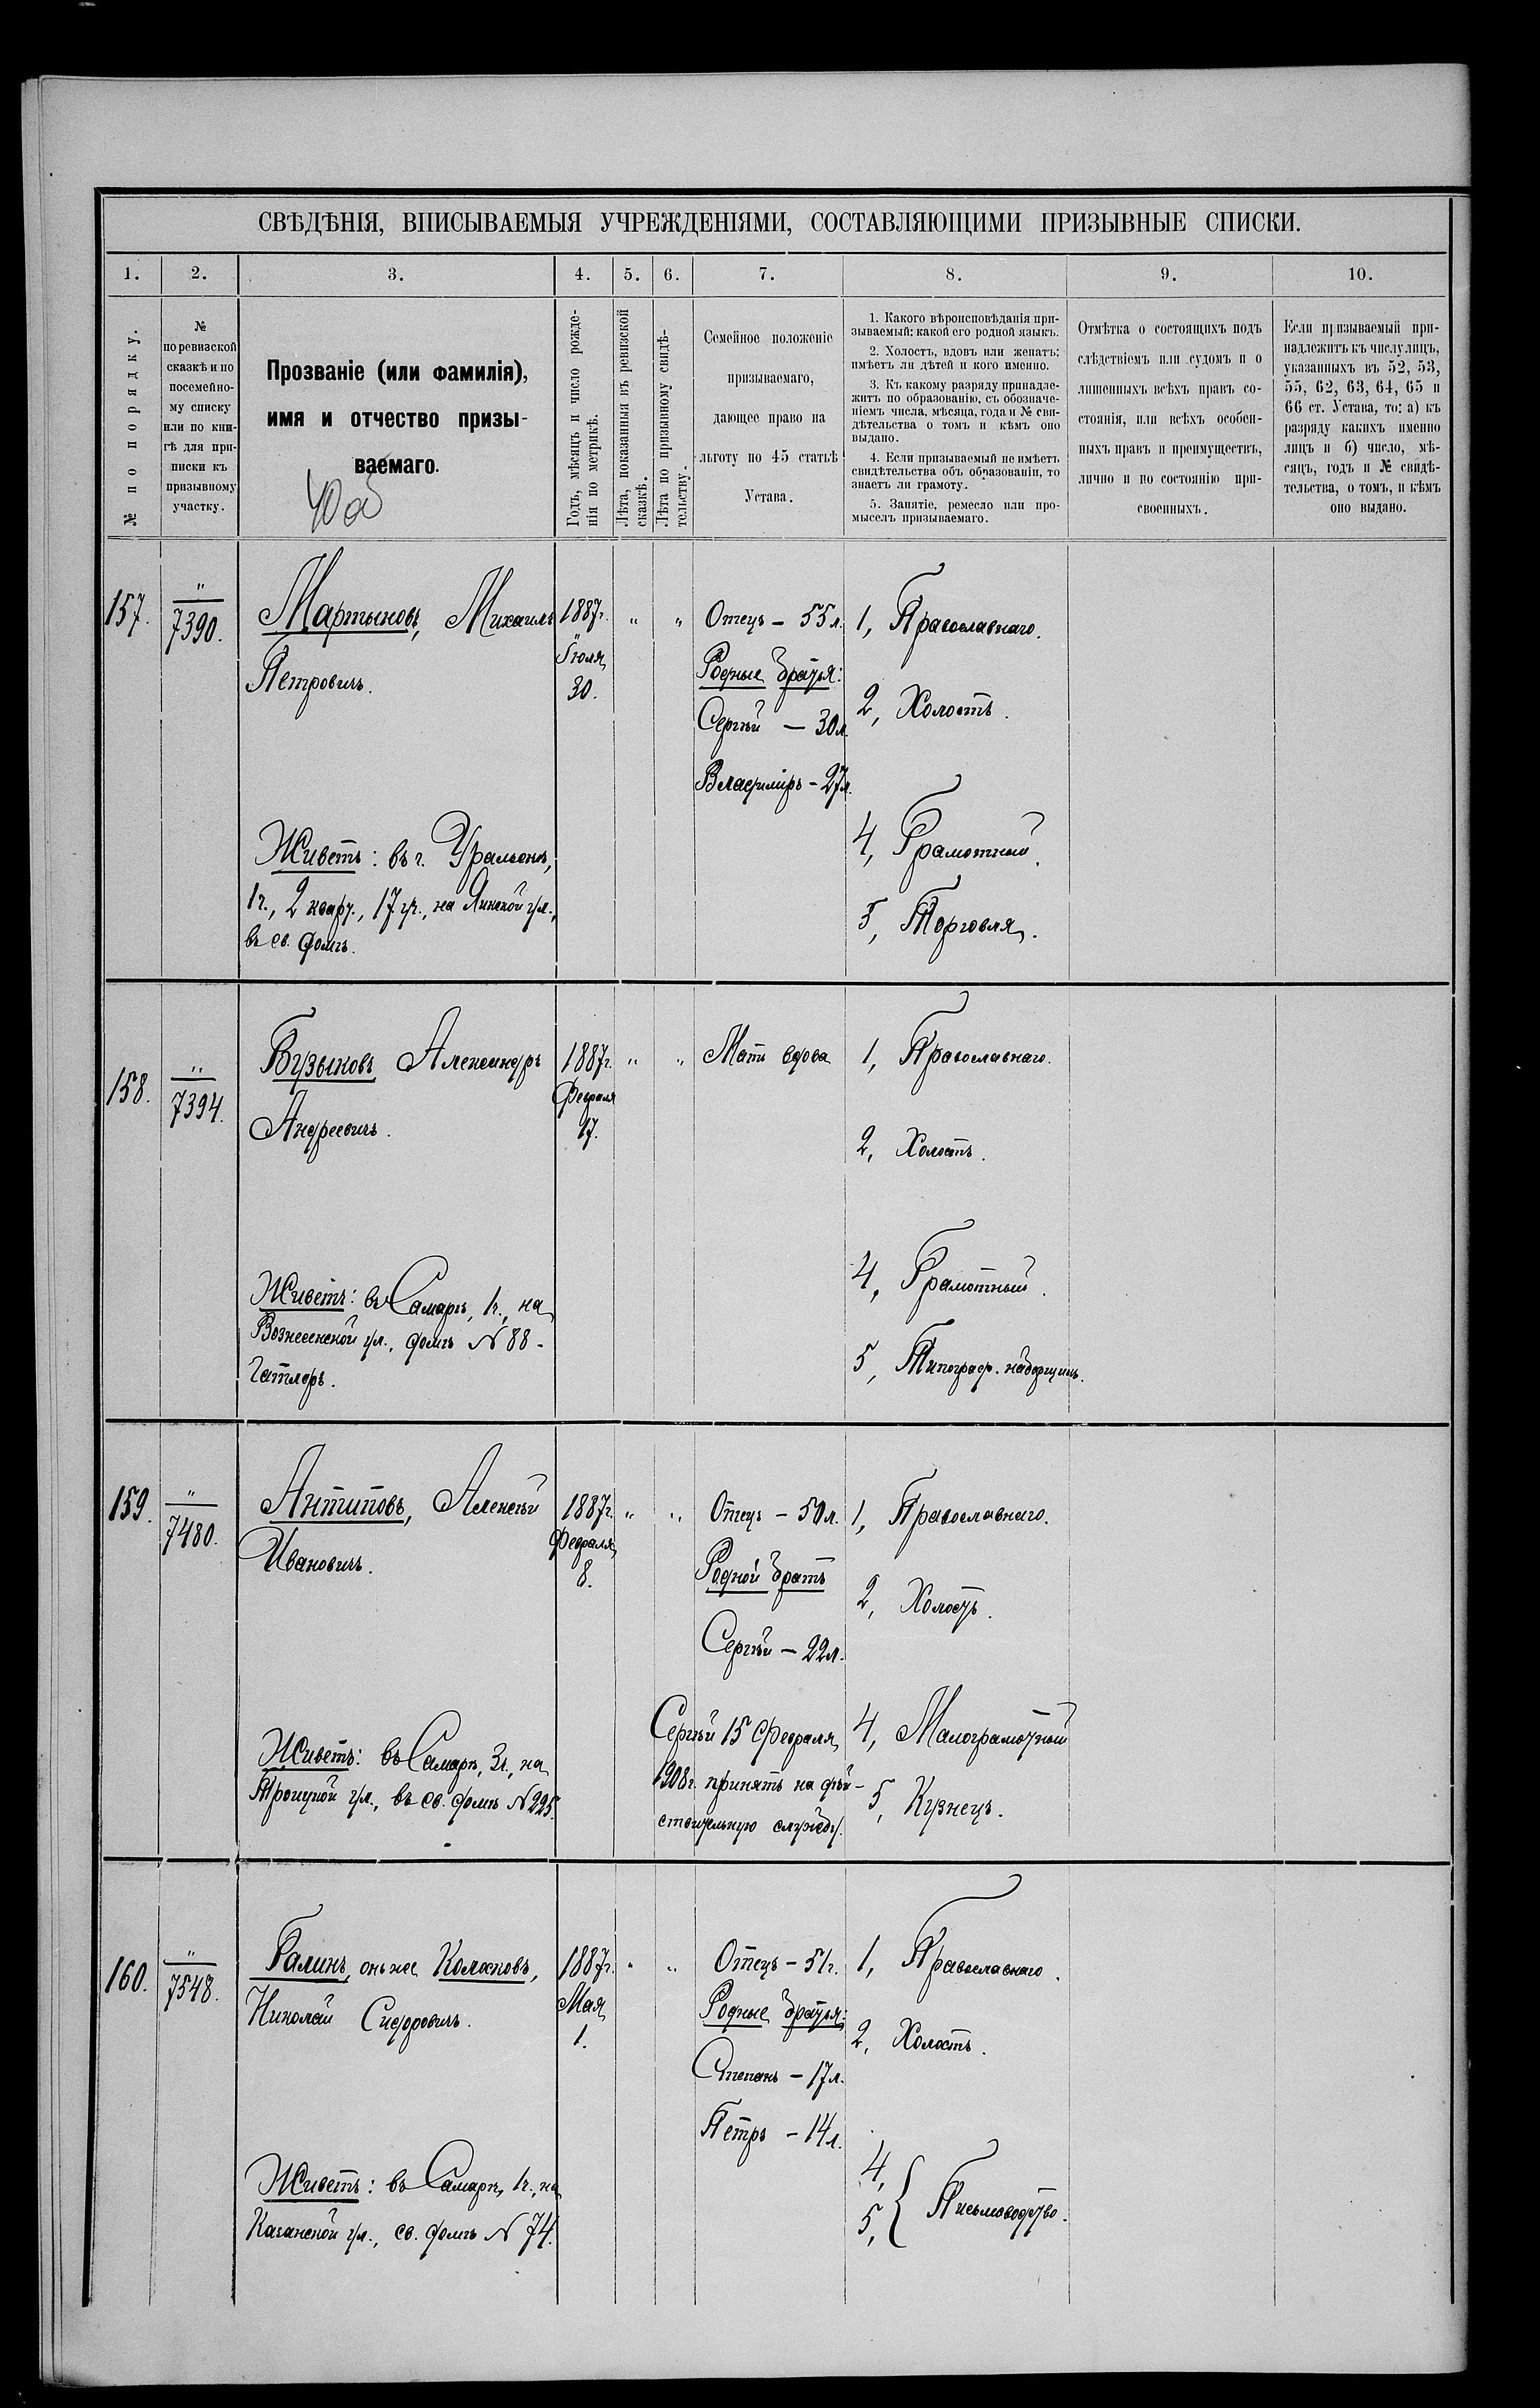 СВѢДѢНІЯ, ВПИСЫВАЕМЫЯ УЧРЕЖДЕНІЯМИ, СОСТАВЛЯЮЩИМИ ПРИЗЫВНЫЕ СПИСКИ.
1. 2. 3. 4. 5. 6. 7. 8. 9. 10.
№ по порядку.
№
по ревизской
сказкѣ и по
посемейно-
му списку
или по кни-
гѣ для при-
писки къ
призывному
участку.
Прозваніе (или фамилія),
имя и отчество призы-
ваемаго.
Годъ, мѣсяцъ и число рожде-
нія по метрикѣ.
Лѣта, показанныя въ ревизской
сказкѣ.
Лѣта по призывному свидѣ-
тельству.
Семейное положеніе
призываемаго,
дающее право на
льготу по 45 статьѣ
Устава.
1. Какого вѣроисповѣданія при-
зываемый: какой его родной языкъ.
2. Холостъ, вдовъ или женатъ:
имѣетъ ли дѣтей и кого именно.
3. Къ какому разряду принадле-
житъ по образованію, съ обозначе-
ніемъ числа, мѣсяца, года и № сви-
дѣтельства о томъ и кѣмъ оно
выдано.
4. Если призываемый не имѣетъ
свидѣтельства объ образованіи, то
знаетъ ли грамоту.
5. Занятіе, ремесло или про-
мыселъ призываемаго.
Отмѣтка о состоящихъ подъ
слѣдствіемъ или судомъ и о
лишенныхъ всѣхъ правъ со-
стоянія, или всѣхъ особен-
ныхъ правъ и преимуществъ,
лично и по состоянію при-
своенныхъ.
Если призываемый при-
надлежитъ къ числу лицъ,
указанныхъ въ 52, 53,
55, 62, 63, 64, 65 и
66 ст. Устава, то: а) къ
разряду какихъ именно
лицъ и б) число, мѣ-
сяцъ, годъ и № свидѣ-
тельства, о томъ, и кѣмъ
оно выдано.
157.
"
7390.
Мартыновъ, Михаилъ
Петровичъ.
Живетъ: въ г. Уральскѣ,
1 ч., 2 кварт., 17 гр., на Яикской ул.,
въ св. домѣ.
1887 г.
Іюля
30.
" "
Отецъ – 55 л.
Родные братья:
Сергѣй – 30 л.
Владиміръ – 27 л.
1, Православнаго.
2, Холостъ.
4, Грамотный.
5, Торговля.
158.
"
7394.
Бузыковъ Александръ
Андреевичъ.
Живетъ: въ Самарѣ, 1 ч., на
Вознесенской ул., домъ № 88 -
1887 г.
Февраля
17.
" "
Мать вдова
1, Православнаго.
2, Холостъ.
4, Грамотный.
5, Типограф. наборщикъ.
159.
"
7480.
Антиповъ, Алексѣй
Ивановичъ.
Живетъ: въ Самарѣ, 3 ч., на
Троицкой ул., въ св. домѣ № 225.
1887 г.
Февраля
8.
" "
Отецъ – 50 л.
Родной братъ
Сергѣй – 22 л.
Сергѣй 15 Февраля
1908 г. принятъ на дѣй-
ствительную службу.
1, Православнаго.
2, Холостъ.
4, Малограмотный
5, Кузнецъ.
160.
"
7548.
Галинъ, онъ же Колоковъ,
Николай Сидоровичъ.
Живетъ: въ Самарѣ, 1 ч., на
Казанской ул., св. домъ № 74.
1887 г.
Мая
1.
" "
Отецъ – 51 г.
Родные братья:
Степанъ – 17 л.
Петръ – 14 л.
1, Православнаго.
2, Холостъ.
4,
5, } Письмоводство.